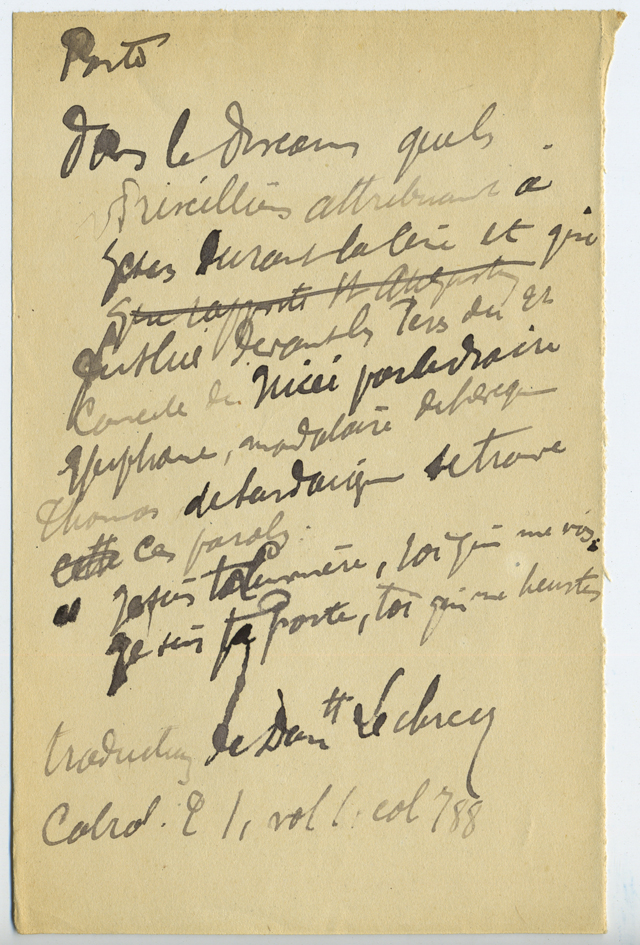 Porte
Dans le Discours que les
Priscilliens attribuent à
Jésus durant la Cène et qui
que rapporte St Augustin
fut lue devant les Pères du 2e
Concile de Nicée par le diacre
Epiphane, mandataire de l'évêque
Thomas de Sardaigne se trouve
cette ces parols.
" Je suis ta lumière, toi qui me vois.
Je suis ta Porte, toi qui me heurtes
traduction de Dom H Leclercq
Cabrol. P 1, vol 1. col 788